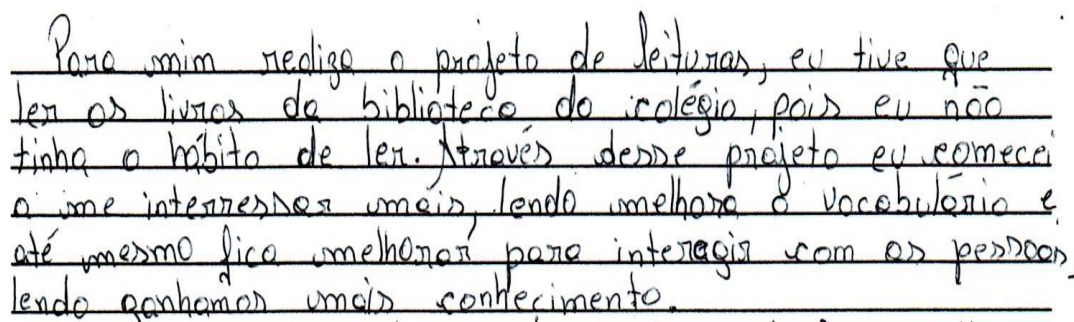 Para mim rediza o projeto de leituras, eu tive que
ler os livros da biblioteca do colégio, pois eu não
tinha o hábito de ler. Através desse projeto eu comecei
a me interressar mais, lendo melhora o vocabulário e
até mesmo fica melhorar para interagir com as pessoas,
lendo ganhamos mais conhecimento.